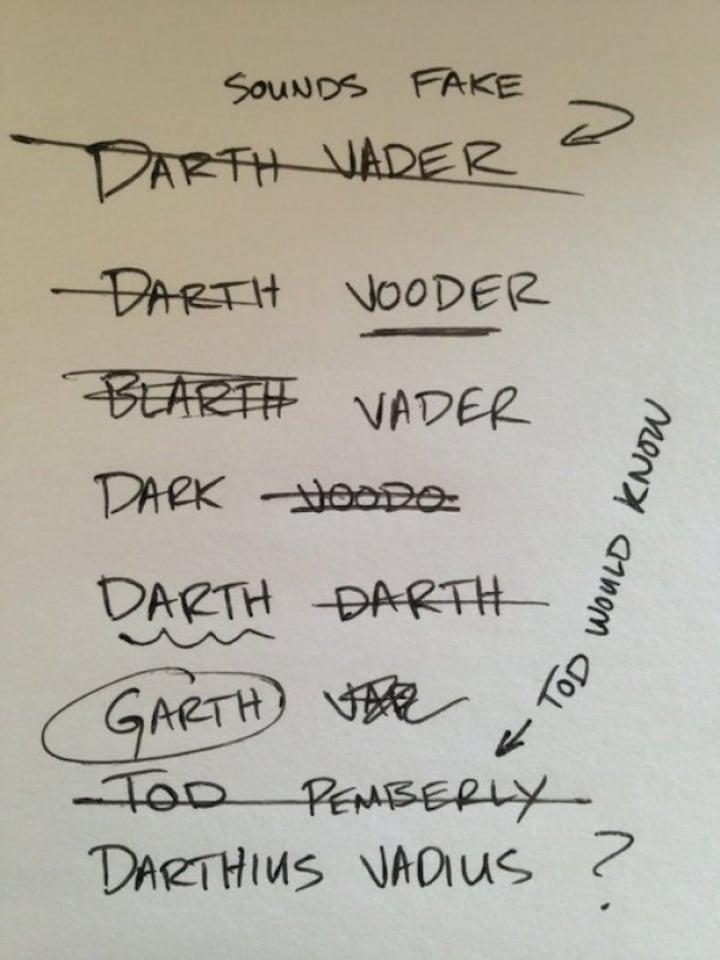 SOUNDS FAKE
DARTH VADER
DARTH VOODER
BLARTH VADER
DARK VOODO
DARTH DARTH
GARTH
TOD WOULD KNOW
TOD PEMBERLY
DARTHIUS VADIUS ?